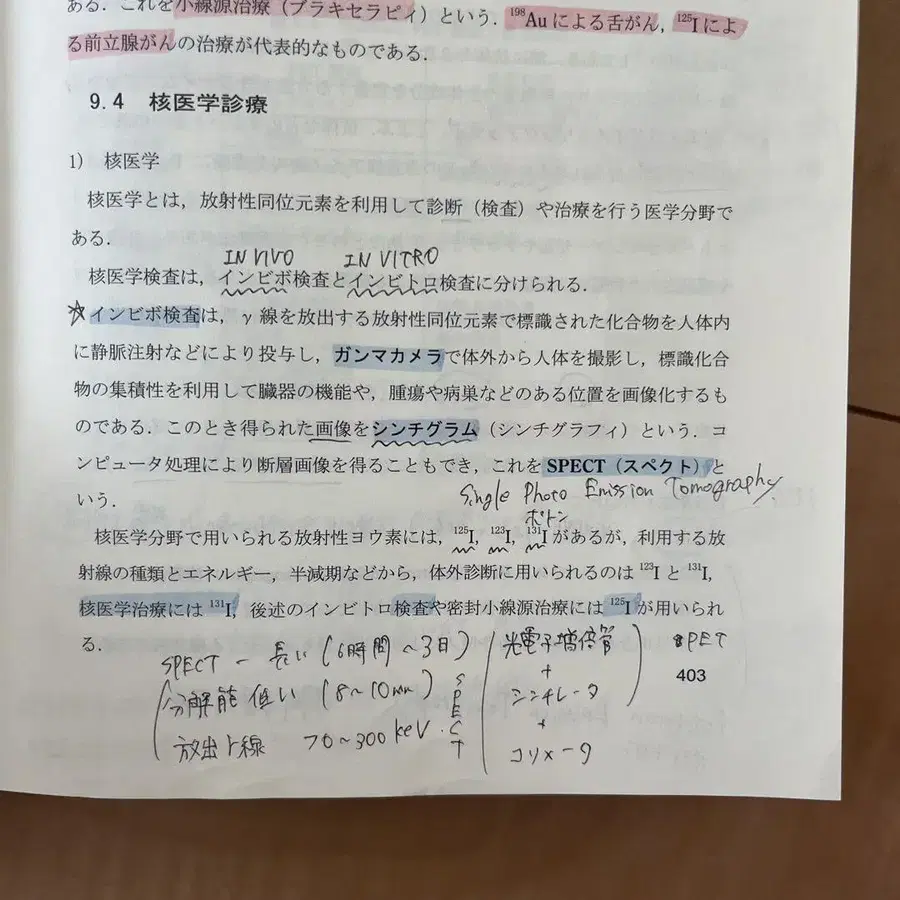 ある．これを小線源治療（ブラキセラピィ）という．¹⁹⁸Auによる舌がん，¹²⁵Iによ
る前立腺がんの治療が代表的なものである．
9.4 核医学診療
1) 核医学
核医学とは，放射性同位元素を利用して診断（検査）や治療を行う医学分野で
ある．
IN VIVO IN VITRO
核医学検査は，インビボ検査とインビトロ検査に分けられる．
☆インビボ検査は，γ線を放出する放射性同位元素で標識された化合物を人体内
に静脈注射などにより投与し，ガンマカメラで体外から人体を撮影し，標識化合
物の集積性を利用して臓器の機能や，腫瘍や病巣などのある位置を画像化するも
のである．このとき得られた画像をシンチグラム（シンチグラフィ）という．コ
ンピュータ処理により断層画像を得ることもでき，これをSPECT（スペクト）と
いう．
Single Photo Emission Tomography
ポトン
核医学分野で用いられる放射性ヨウ素には，¹²⁵I，¹²³I，¹³¹Iがあるが，利用する放
射線の種類とエネルギー，半減期などから，体外診断に用いられるのは¹²³Iと¹³¹I，
核医学治療には¹³¹I，後述のインビトロ検査や密封小線源治療には¹²⁵Iが用いられ
る．
SPECT － 長い (6時間～3日)
分解能 低い (8～10mm)
放出γ線 70～300 keV
SPECT
光電子増倍管
+
シンチレータ
+
コリメータ
SPET
403